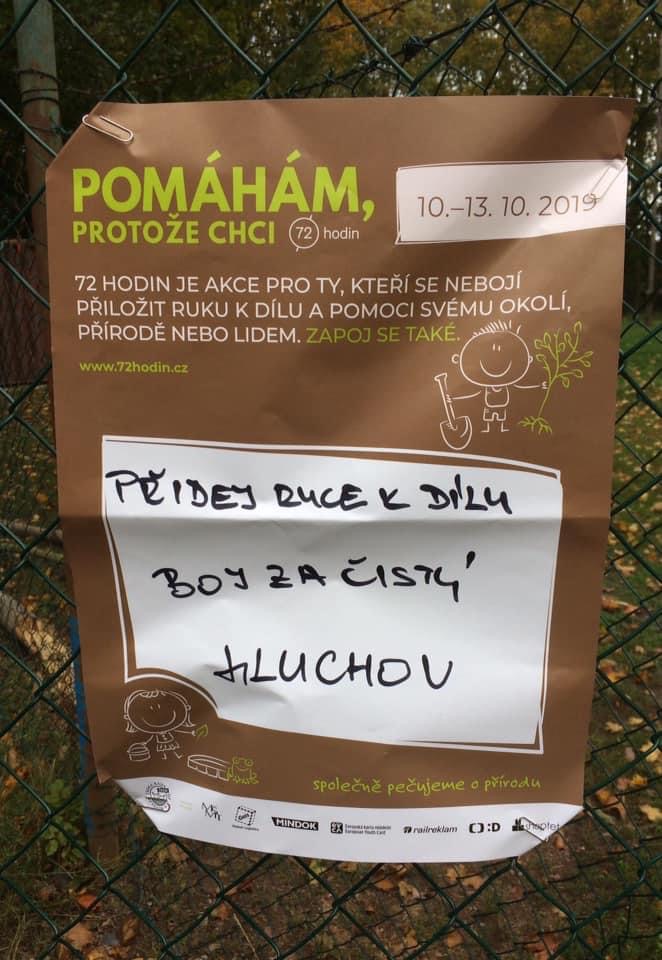 POMÁHÁM,
PROTOŽE CHCI 72 hodin
10.–13. 10. 2019
72 HODIN JE AKCE PRO TY, KTEŘÍ SE NEBOJÍ
PŘILOŽIT RUKU K DÍLU A POMOCI SVÉMU OKOLÍ,
PŘÍRODĚ NEBO LIDEM. ZAPOJ SE TAKÉ.
www.72hodin.cz
PŘIDEJ RUCE K DÍLU
BOJ ZA ČISTÝ
HLUCHOV
společně pečujeme o přírodu
MINDOK Evropská karta mládeže railreklam :D shoptet
European Youth Card